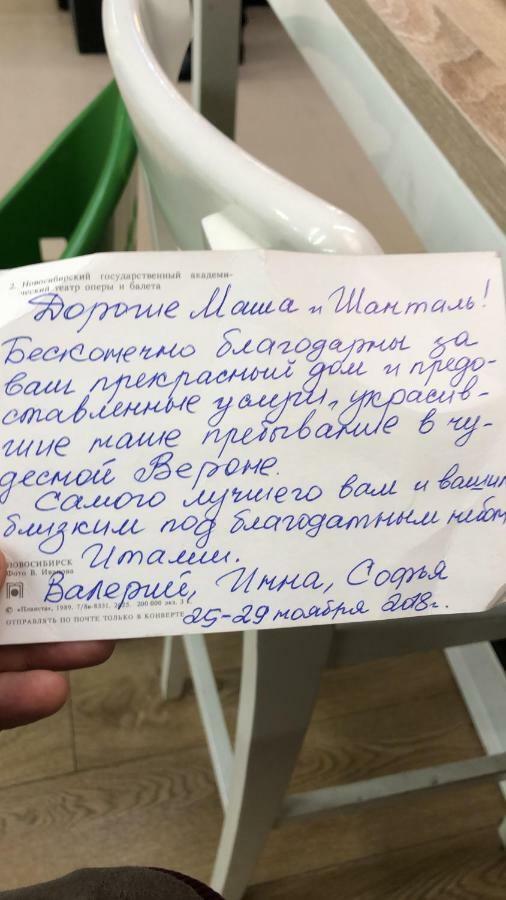 2. Новосибирский государственный академи-
ческий театр оперы и балета
Дорогие Маша и Шанталь!
Бесконечно благодарны за
ваш прекрасный дом и предо-
ставленные услуги, украсив-
шие наше пребывание в чу-
десной Вероне.
Самого лучшего вам и вашим
близким под благодатным небом
Италии.
НОВОСИБИРСК
Фото В. Иванова
Валерий, Инна, Софья
© «Планета», 1989. 7/8в-8331. 2035. 200 000 экз. 3 к.
25-29 ноября 2018г.
ОТПРАВЛЯТЬ ПО ПОЧТЕ ТОЛЬКО В КОНВЕРТЕ